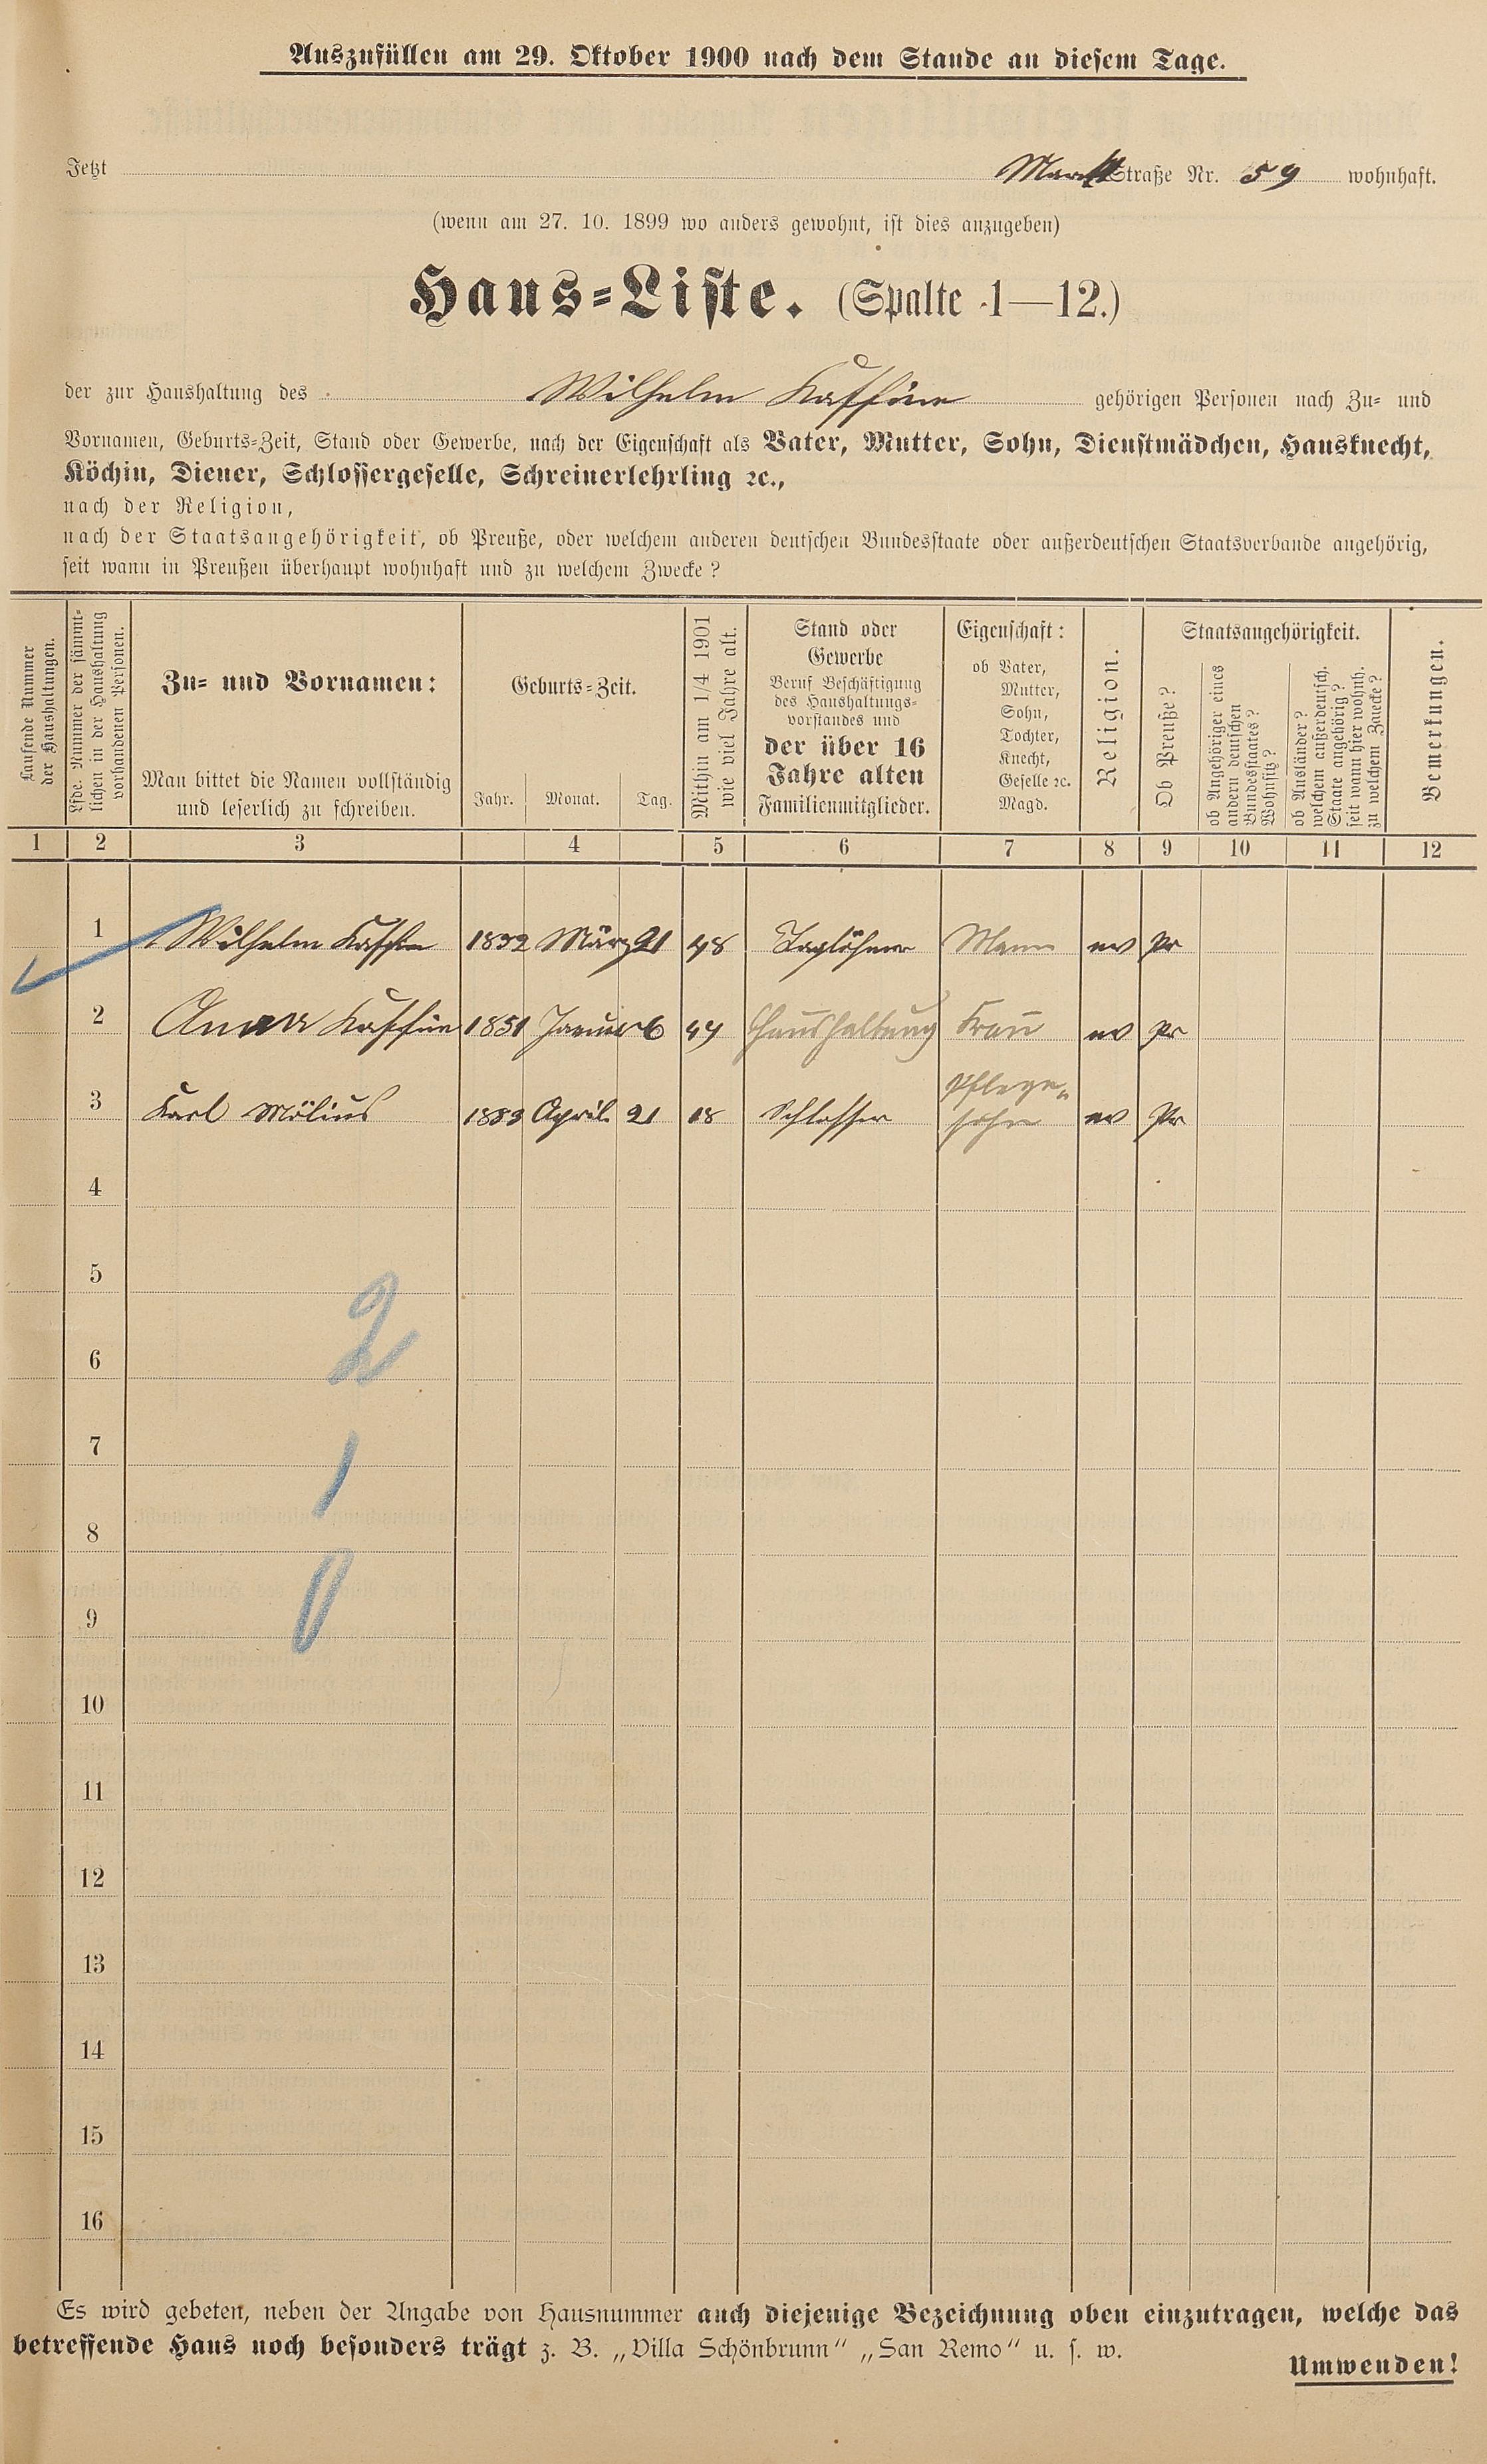 Auszufüllen am 29. Oktober 1900 nach dem Stande an diesem Tage.
Jetzt Markt Straße Nr. 59 wohnhaft.
(wenn am 27. 10. 1899 wo anders gewohnt, ist dies anzugeben)
Haus-Liste. (Spalte 1—12.)
der zur Haushaltung des Wilhelm gehörigen Personen nach Zu- und
Vornamen, Geburts-Zeit, Stand oder Gewerbe, nach der Eigenschaft als Vater, Mutter, Sohn, Dienstmädchen, Hausknecht,
Köchin, Diener, Schlossergeselle, Schreinerlehrling ꝛc.,
nach der Religion,
nach der Staatsangehörigkeit, ob Preuße, oder welchem anderen deutschen Bundesstaate oder außerdeutschen Staatsverbande angehörig,
seit wann in Preußen überhaupt wohnhaft und zu welchem Zwecke?
Laufende Nummer
der Haushaltungen.
Lfde. Nummer der sämmt-
lichen in der Haushaltung
vorhandenen Personen.
Zu- und Vornamen:
Man bittet die Namen vollständig
und leserlich zu schreiben.
Geburts-Zeit.
Jahr. Monat. Tag.
Mithin am 1/4 1901
wie viel Jahre alt.
Stand oder
Gewerbe
Beruf Beschäftigung
des Haushaltungs-
vorstandes und
der über 16
Jahre alten
Familienmitglieder.
Eigenschaft:
ob Vater,
Mutter,
Sohn,
Tochter,
Knecht,
Geselle ꝛc.
Magd.
Religion.
Staatsangehörigkeit.
Ob Preuße?
ob Angehöriger eines
andern deutschen
Bundesstaates?
Wohnsitz?
ob Ausländer?
welchem außerdeutsch.
Staate angehörig?
seit wann hier wohnh.
zu welchem Zwecke?
Bemerkungen.
1 2 3 4 5 6 7 8 9 10 11 12
1 Wilhelm März 21 48 Taglöhner Mann ev Pr
2 Anna 1851 Januar 6 49 Haushaltung Frau ev Pr
3 Karl Mölius 1883 April 21 18 Schlosser Pflege-
sohn ev Pr
4
5
6
7
8
9
10
11
12
13
14
15
16
2
1
0
Es wird gebeten, neben der Angabe von Hausnummer auch diejenige Bezeichnung oben einzutragen, welche das
betreffende Haus noch besonders trägt z. B. „Villa Schönbrunn“ „San Remo“ u. s. w.
Umwenden!